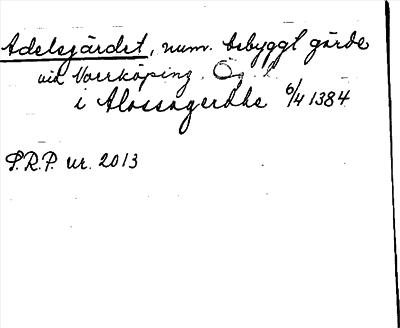 Adelsgärdet, num. bebyggt gärde
vid Norrköping. Ög.
i Alossagerdhe 6/4 1384
S.R.P. nr. 2013